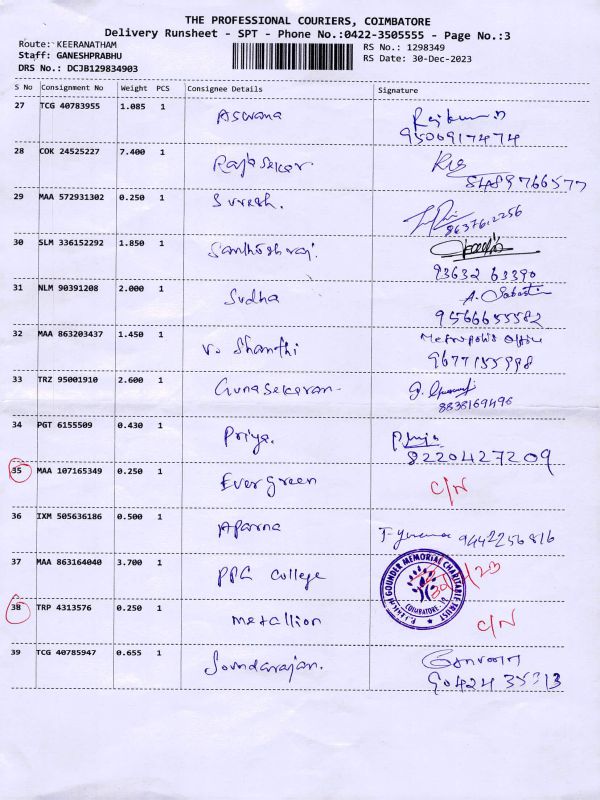 THE PROFESSIONAL COURIERS, COIMBATORE
Delivery Runsheet - SPT - Phone No.:0422-3505555 - Page No.:3
Route: KEERANATHAM RS No.: 1298349
Staff: GANESHPRABHU RS Date: 30-Dec-2023
DRS No.: DCJB129834903
S No Consignment No Weight PCS Consignee Details Signature
27 TCG 40783955 1.085 1 Aswana Rajkumar
9500917474
28 COK 24525227 7.400 1 Rajasekar
9766577
29 MAA 572931302 0.250 1 Suresh.
8637612256
30 SLM 336152292 1.850 1 Santhoshraj.
93632 63390
31 NLM 90391208 2.000 1 Sudha A. Sabastin
9566655582
32 MAA 863203437 1.450 1 V. Shanthi Metropolis Office
9677155998
33 TRZ 95001910 2.600 1 Gunasekaran
8838169496
34 PGT 6155509 0.430 1 Priya.
8220427209
35 MAA 107165349 0.250 1 Evergreen C/N
36 IXM 505636186 0.500 1 Aparna 9442256816
37 MAA 863164040 3.700 1 PPG College
GOUNDER MEMORIAL CHARITABLE TRUST
COIMBATORE
38 TRP 4313576 0.250 1 Metallion C/N
39 TCG 40785947 0.655 1 Soundarajan.
90424 35313